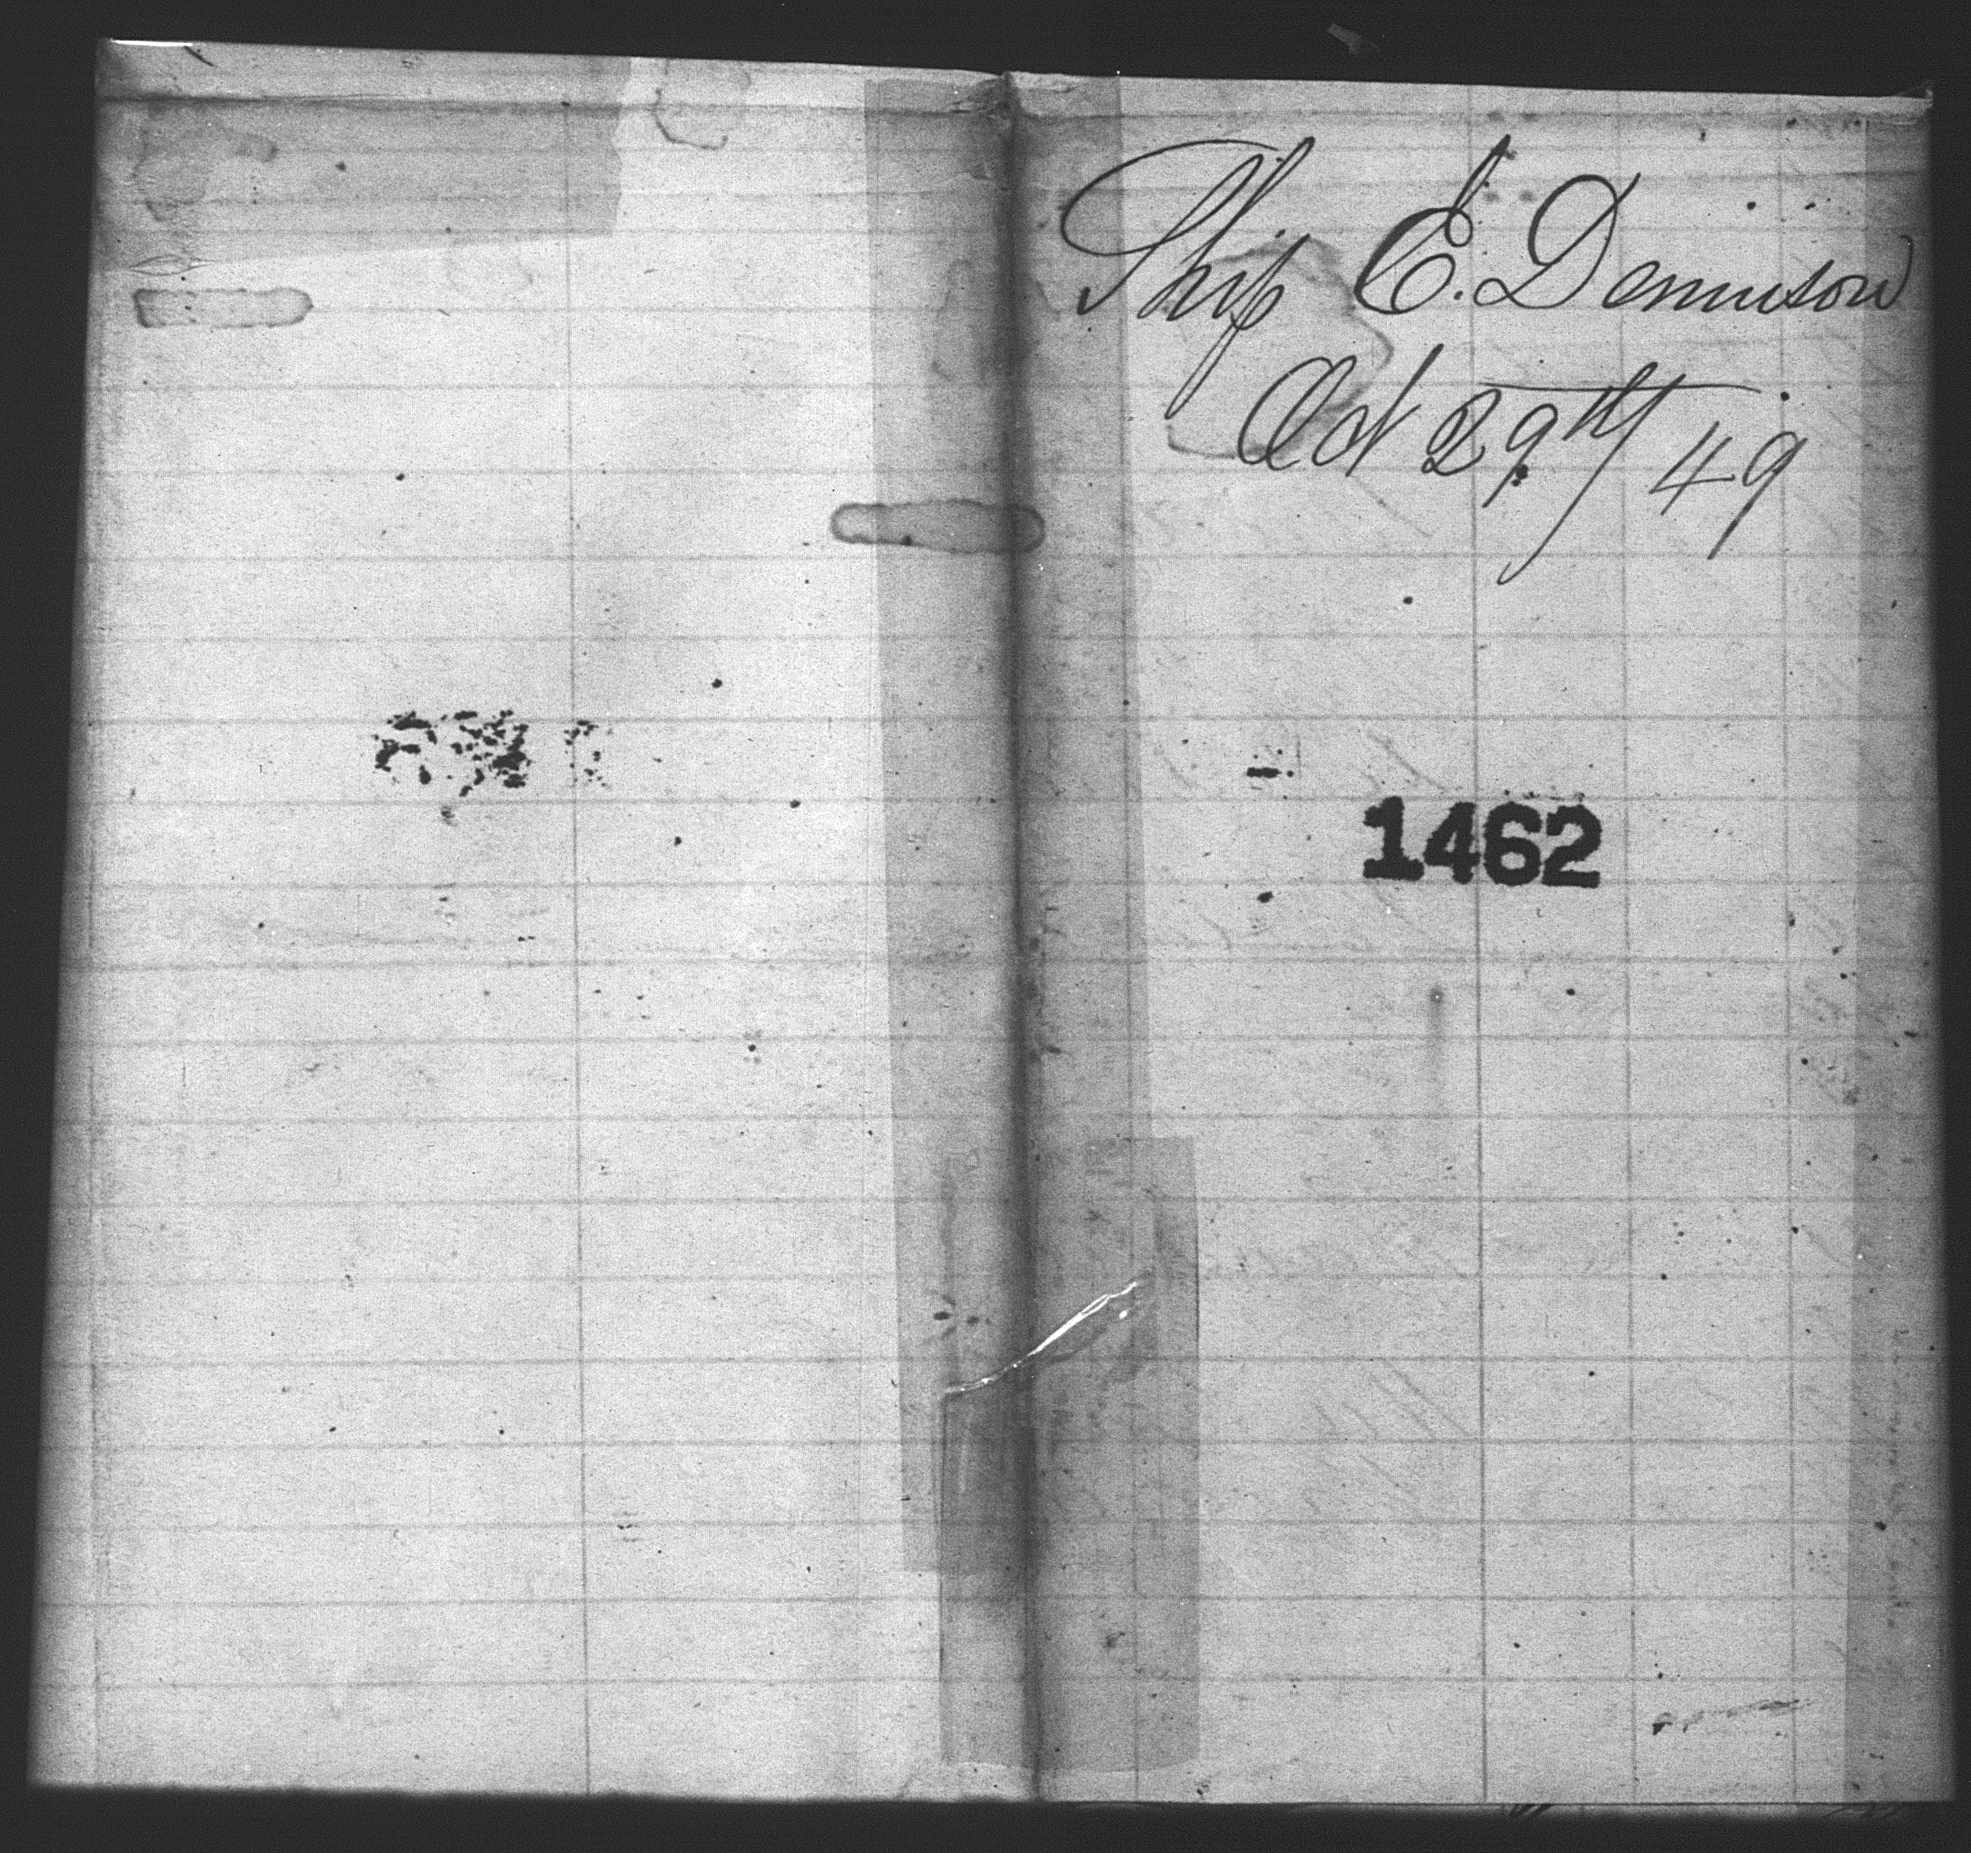 Ship E. Dennison
Oct 29th/49
1462